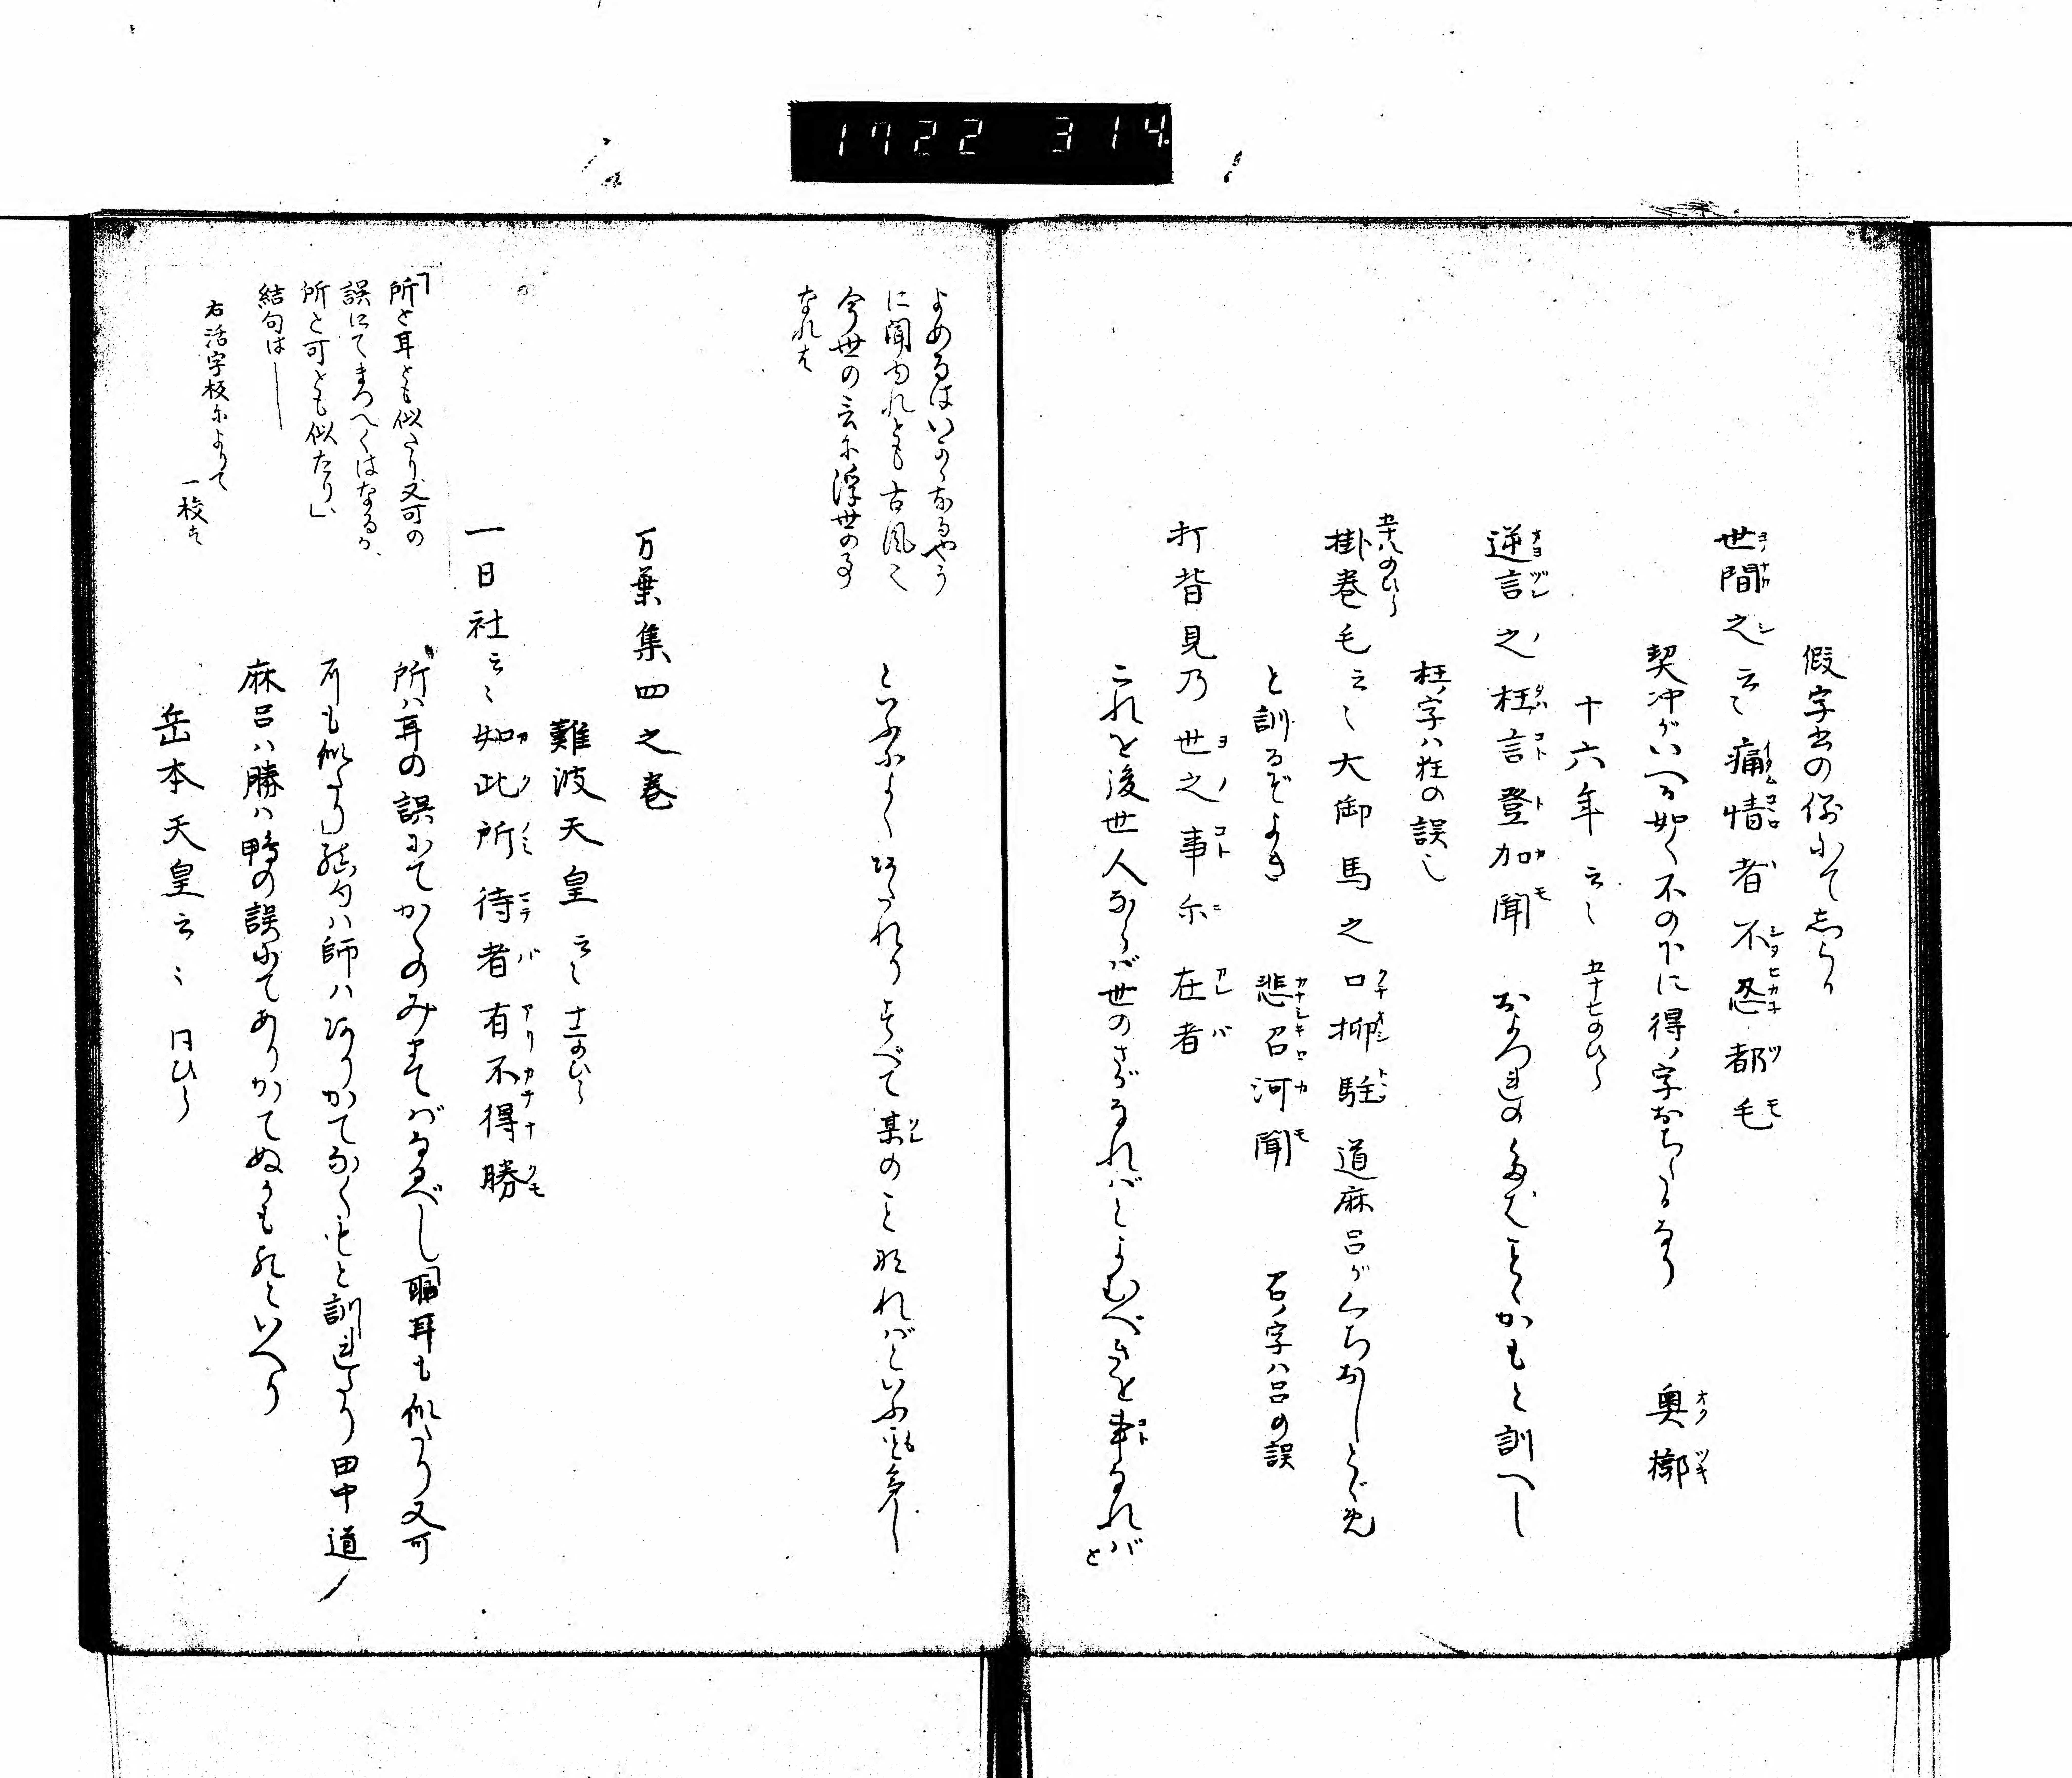 1722 314
假字書の例にてしらる
世間之云々痛情者不忍都毛
契冲がいへる如く不の下に得ノ字おちたるなり　奥槨
十六年云々　五十七のひら
逆言之枉言登加聞　およづれのたはことかもと訓へし
枉ノ字ハ狂の誤也
五十八のひら
掛巻毛云々大御馬之口抑駐　道麻呂がくちおしとゞめ
と訓るぞよき　悲召河聞　召ノ字ハ呂の誤
打背見乃世之事尓在者
これを後世人ならバ世のさがなれバとよむべきを事なれバと
よめるはいかゝなるやう
に聞ゆれとも古風也
今世の言に浮世の事
なれは
といふによくかなへりすべて某のこと なればといふ言も多し
万葉集四之巻
難波天皇云々　十二のひら
一日社云々如此所待者有不得勝
所ハ耳の誤にてかくのみまてバなるべし 耳も似たり又可
所も似たり」結句ハ師ハありかてなくもと訓れたり田中道
麻呂ハ勝ハ鴨の誤にてありかてぬかも也といへり
岳本天皇云々　同ひら
「所と耳とも似たり又可の
誤にてまつへくはなるか、
所と可とも似たり」、
結句は──
右活字板によりて
一校す